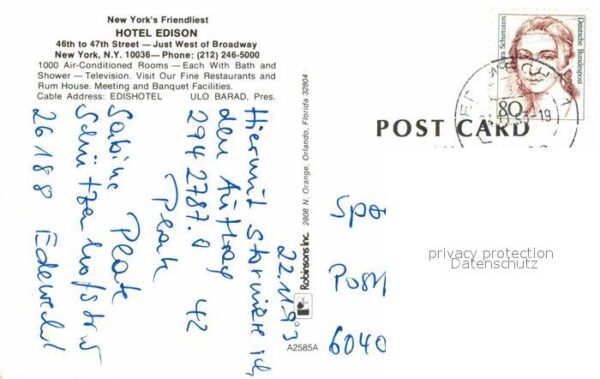 New York's Friendliest
HOTEL EDISON
46th to 47th Street — Just West of Broadway
New York, N.Y. 10036 — Phone: (212) 246-5000
1000 Air-Conditioned Rooms — Each With Bath and
Shower — Television. Visit Our Fine Restaurants and
Rum House. Meeting and Banquet Facilities.
Cable Address: EDISHOTEL ULO BARAD, Pres.
22.11.93
Hiermit storniere ich
den Auftrag
2942787.0 42
Plate
Sabine Plate
26188 Edewecht
Robinsons Inc. 2808 N. Orange, Orlando, Florida 32804
A2585A
Deutsche Bundespost
ra Schumann
80
-19
POST CARD
Spo
Post
6040
privacy protection
Datenschutz